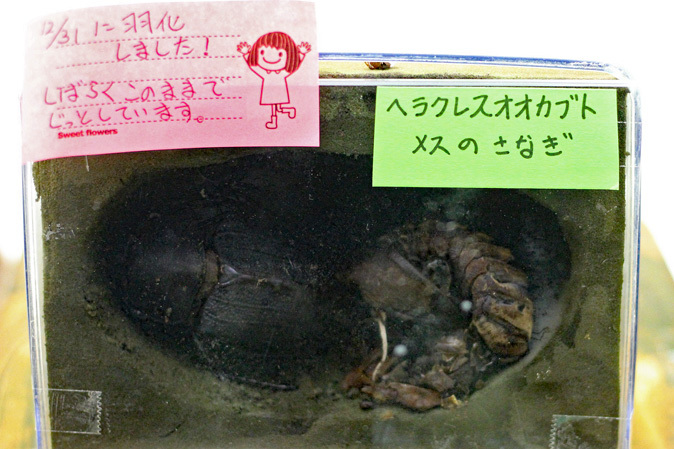 12/31に羽化
しました!
しばらくこのままで
じっとしています。
Sweet flowers
ヘラクレスオオカブト
メスのさなぎ